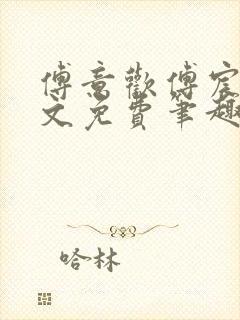 傅意歡傅宸
文免費笔趣
哈林